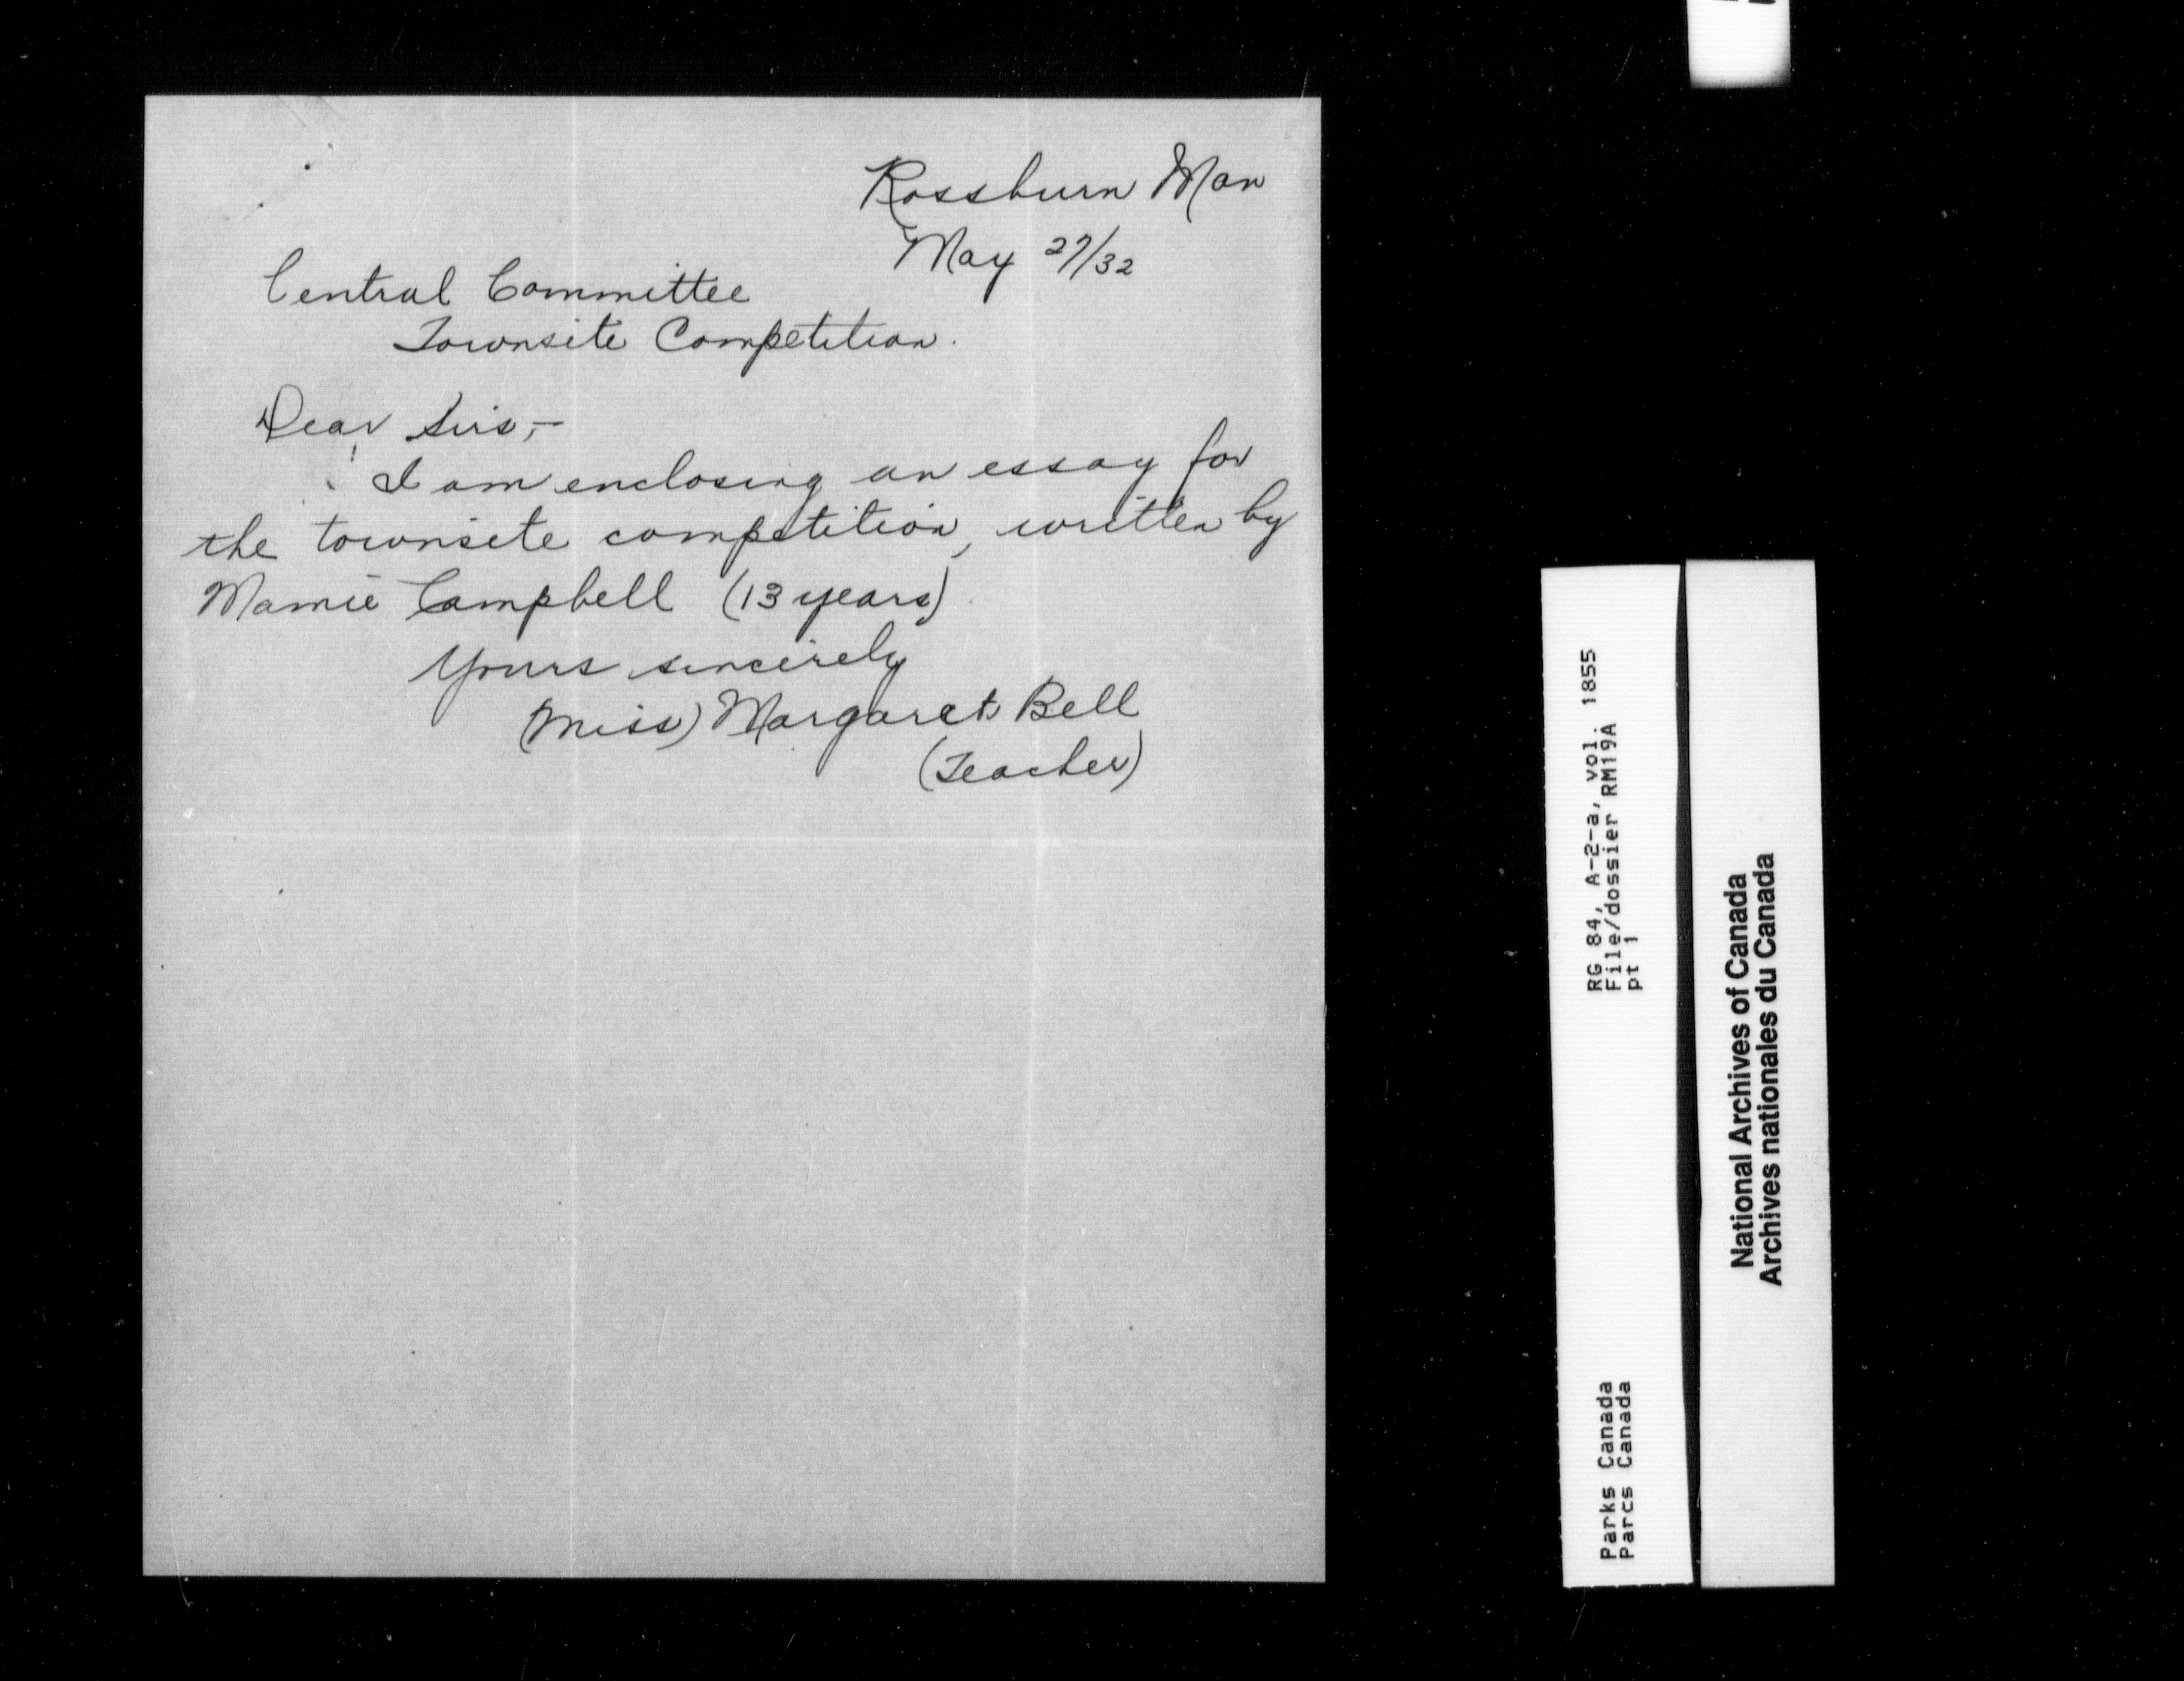 Rossburn Man
May 27/32
Central Committee
Townsite Competition.
Dear Sirs,-
I am enclosing an essay for
the townsite competition, written by
Mamie Campbell (13 years).
Yours sincerely
(Miss) Margaret Bell
(Teacher)
RG 84, A-2-a, vol. 1855
File/dossier RM19A
pt 1
Parks Canada
Parcs Canada
National Archives of Canada
Archives nationales du Canada